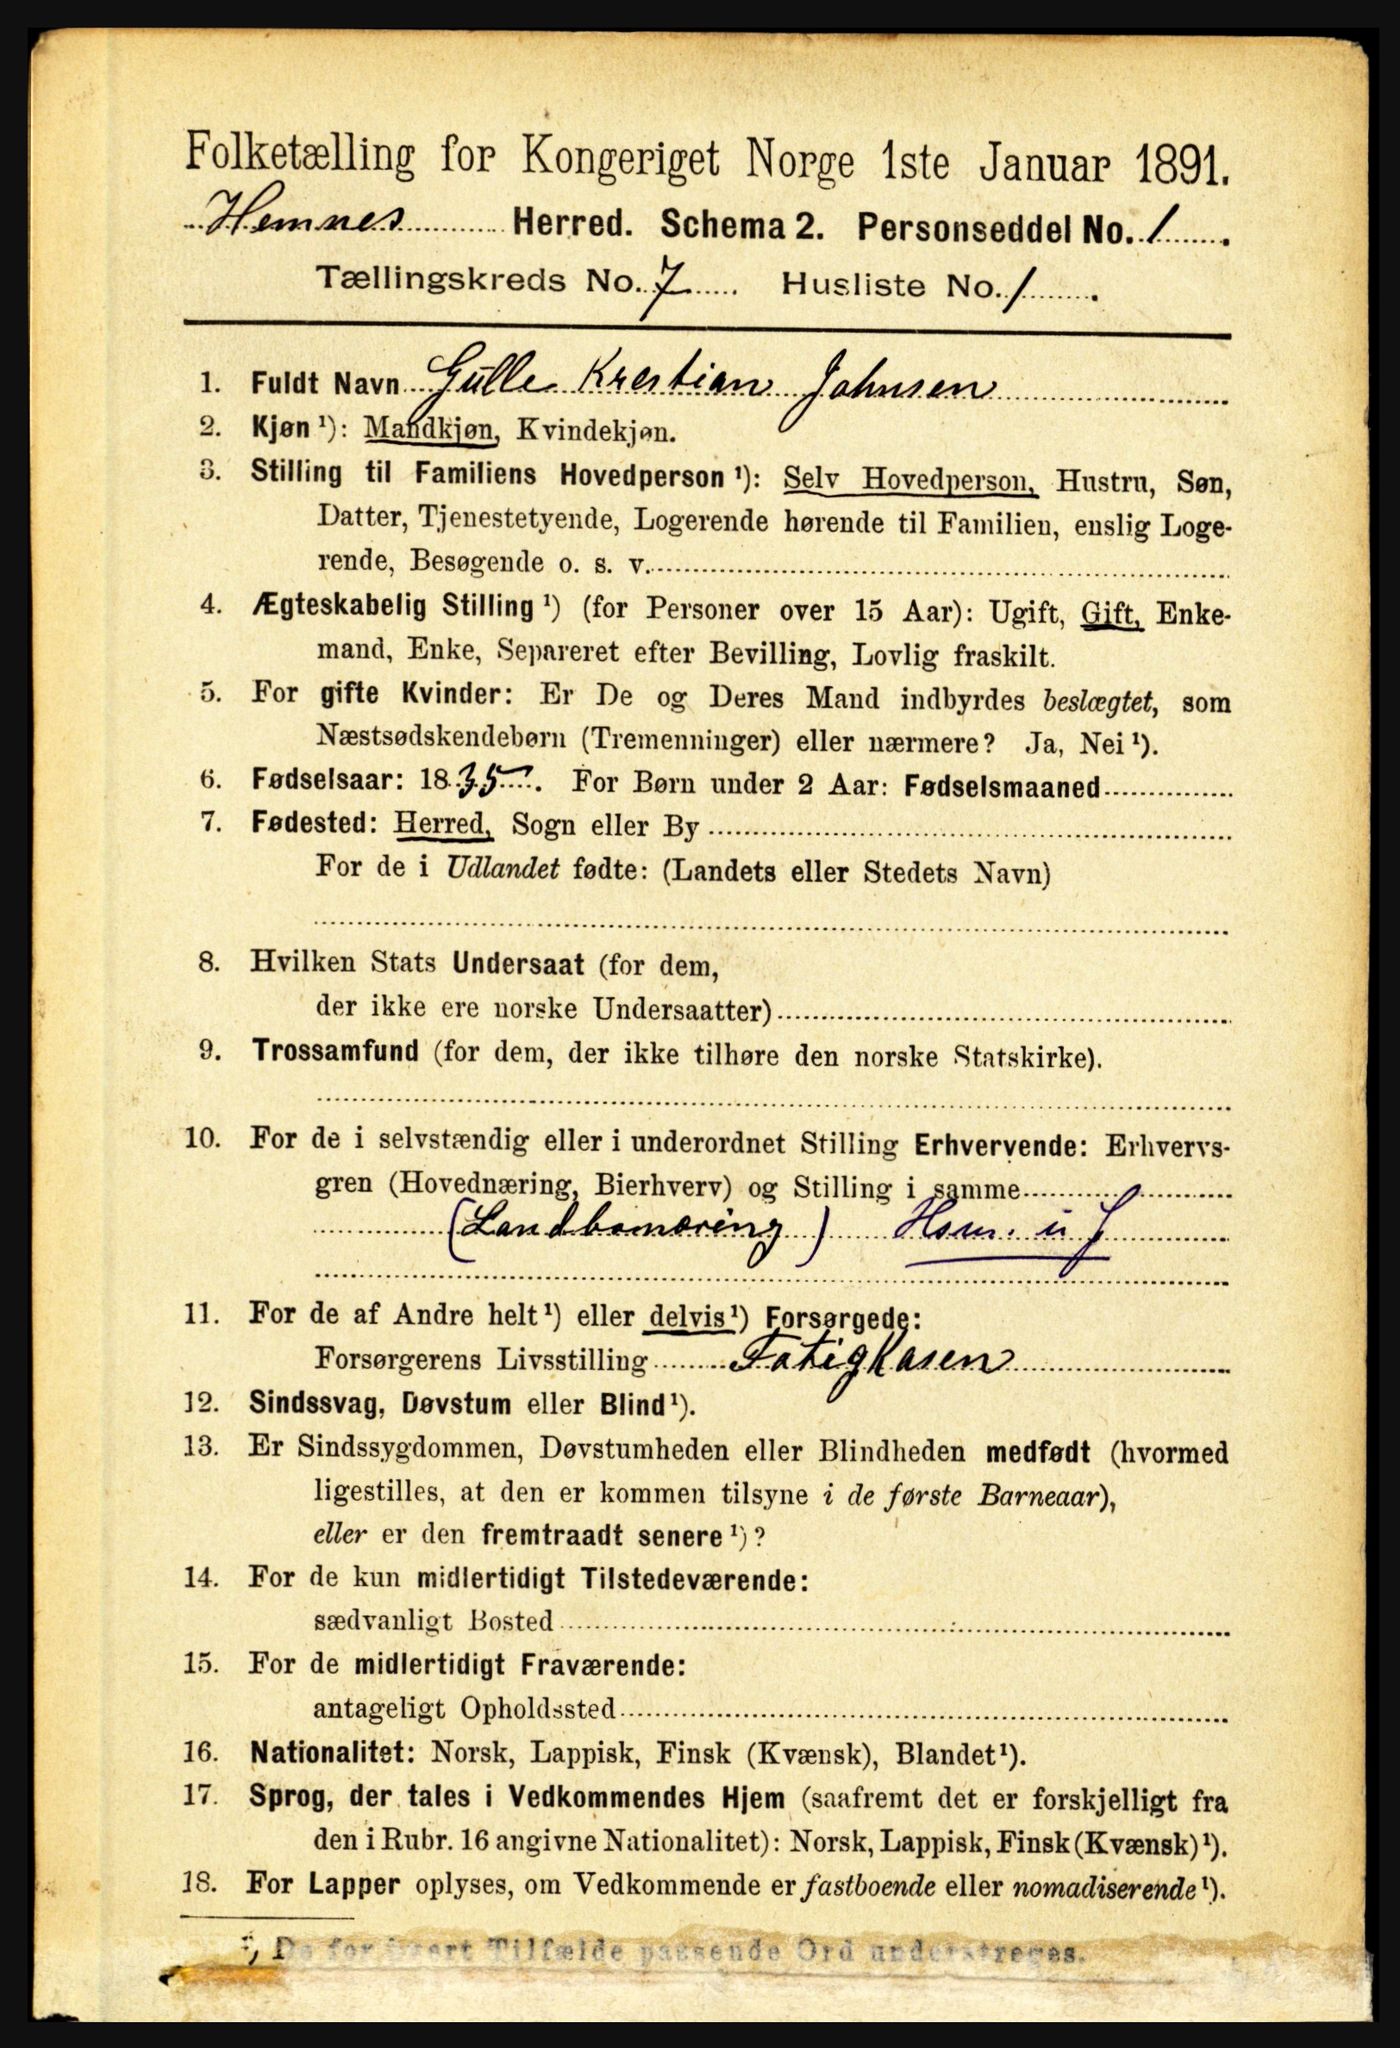 Folketælling for Kongeriget Norge 1ste Januar 1891.
Hemnes Herred. Schema 2. Personseddel No. 1.
Tællingskreds No. 7. Husliste No. 1.
1. Fuldt Navn Gulle Krestian Johnsen
2. Kjøn ¹): Mandkjøn, Kvindekjøn.
3. Stilling til Familiens Hovedperson ¹): Selv Hovedperson, Hustru, Søn,
Datter, Tjenestetyende, Logerende hørende til Familien, enslig Loge-
rende, Besøgende o. s. v.
4. Ægteskabelig Stilling ¹) (for Personer over 15 Aar): Ugift, Gift, Enke-
mand, Enke, Separeret efter Bevilling, Lovlig fraskilt.
5. For gifte Kvinder: Er De og Deres Mand indbyrdes beslægtet, som
Næstsødskendebørn (Tremenninger) eller nærmere? Ja, Nei ¹).
6. Fødselsaar: 1835. For Børn under 2 Aar: Fødselsmaaned
7. Fødested: Herred, Sogn eller By
For de i Udlandet fødte: (Landets eller Stedets Navn)
8. Hvilken Stats Undersaat (for dem,
der ikke ere norske Undersaatter)
9. Trossamfund (for dem, der ikke tilhøre den norske Statskirke).
10. For de i selvstændig eller i underordnet Stilling Erhvervende: Erhvervs-
gren (Hovednæring, Bierhverv) og Stilling i samme
(Landbonæring) Hsm. u J
11. For de af Andre helt ¹) eller delvis ¹) Forsørgede:
Forsørgerens Livsstilling Fatigkasen
12. Sindssvag, Døvstum eller Blind ¹).
13. Er Sindssygdommen, Døvstumheden eller Blindheden medfødt (hvormed
ligestilles, at den er kommen tilsyne i de første Barneaar),
eller er den fremtraadt senere ¹)?
14. For de kun midlertidigt Tilstedeværende:
sædvanligt Bosted
15. For de midlertidigt Fraværende:
antageligt Opholdssted
16. Nationalitet: Norsk, Lappisk, Finsk (Kvænsk), Blandet ¹).
17. Sprog, der tales i Vedkommendes Hjem (saafremt det er forskjelligt fra
den i Rubr. 16 angivne Nationalitet): Norsk, Lappisk, Finsk (Kvænsk) ¹).
18. For Lapper oplyses, om Vedkommende er fastboende eller nomadiserende ¹).
¹) De for hvert Tilfælde passende Ord understreges.